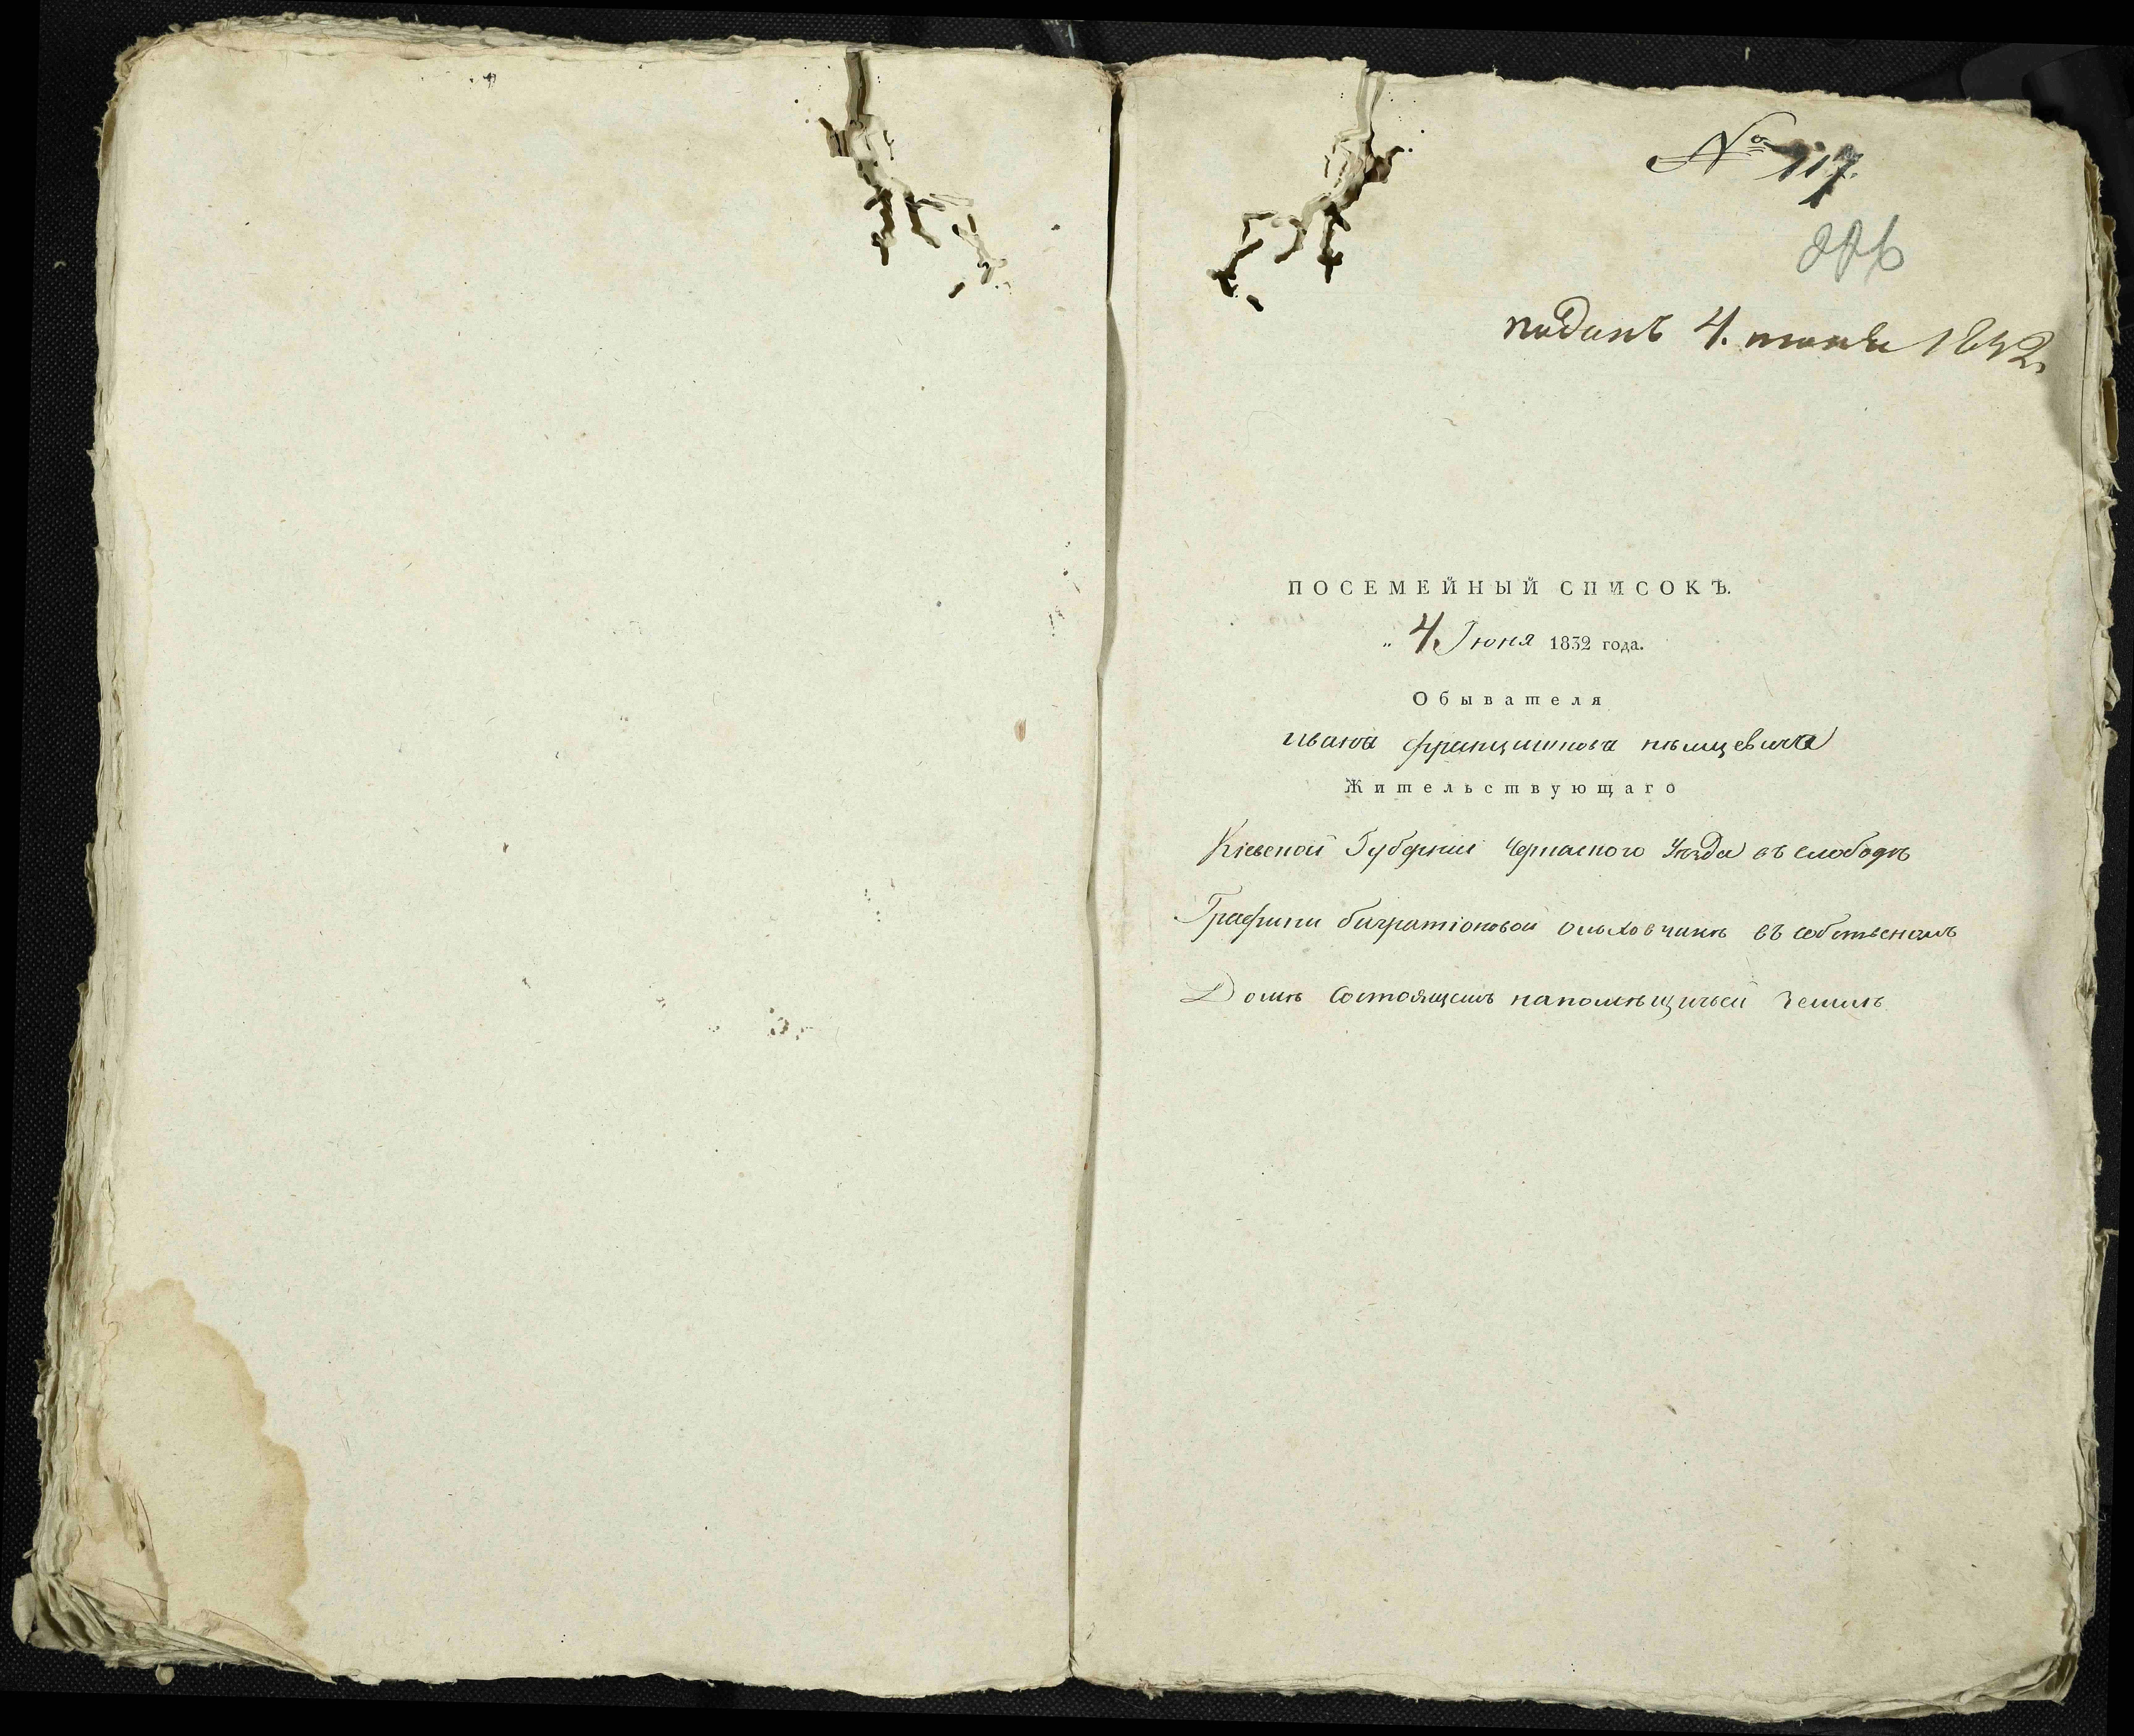 № 117.
поданъ 4. июня 1832
ПОСЕМЕЙНЫЙ СПИСОКЪ.
„ 4. Июня 1832 года.
Обывателя
ивана францишкова нѣмцевича
Жительствующаго
Кіевской Губерніи Черкаского Уѣзда въ слободѣ
Графини багратіоновой олховчикѣ въ собственомъ
Домѣ Состоящемъ напомѣщичьей Землѣ